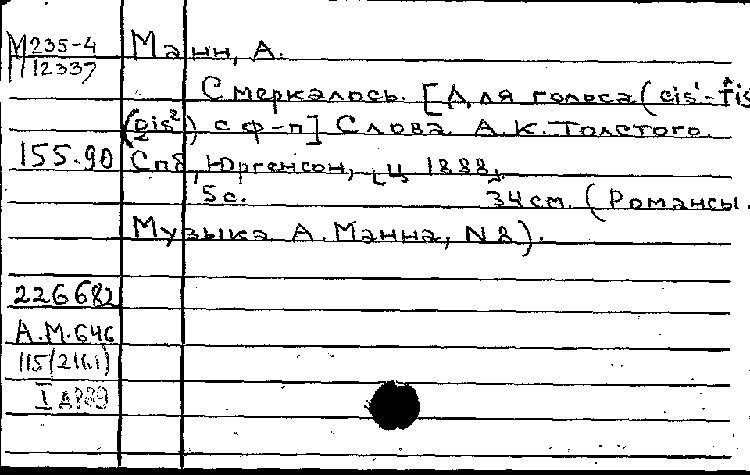 М235-4
12337
Манн, А.
Смеркалось. [Для голоса (cis¹-fis
(gis²) с ф-п] Слова А.К.Толстого.
155.90 Спб, Юргенсон, [ц 1888].
5с. 34см. (Романсы.
Музыка А.Манна, N8).
226682
А.М.646
115(2161)